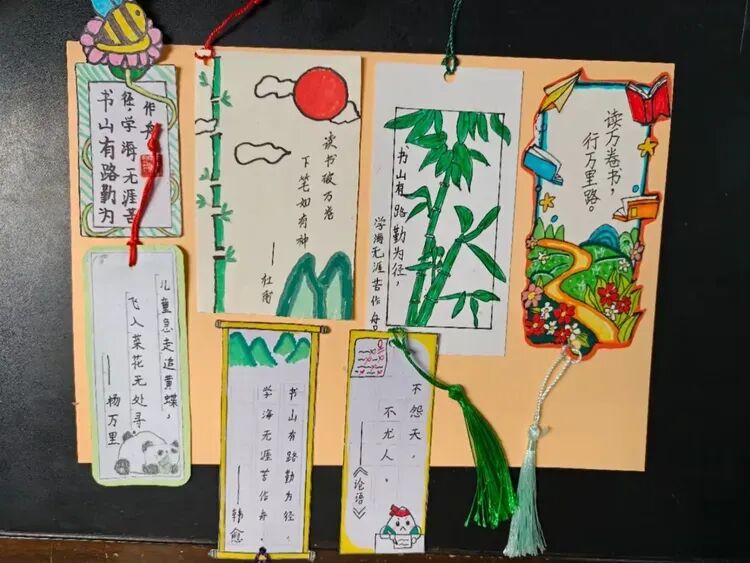 书山有路勤为
径，学海无涯苦
作舟
读书破万卷
下笔如有神
——杜甫
书山有路勤为径，
学海无涯苦作舟。
读万卷书，
行万里路。
儿童急走追黄蝶，
飞入菜花无处寻。
——杨万里
书山有路勤为径，
学海无涯苦作舟。
——韩愈
不怨天，
不尤人。
——《论语》